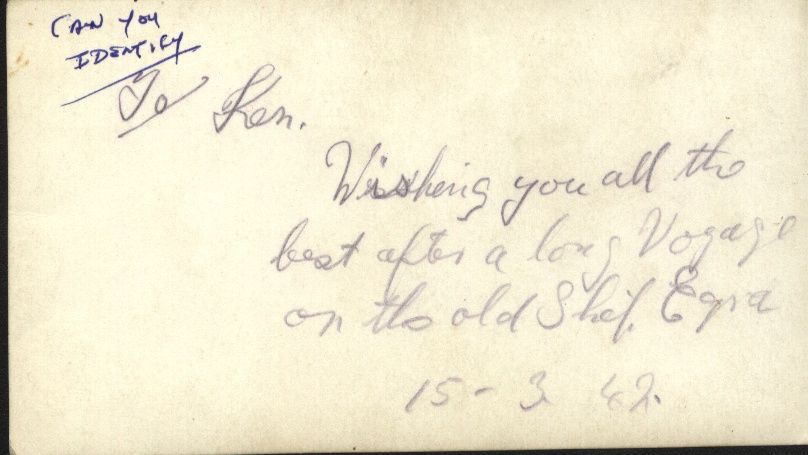 CAN YOU
IDENTIFY
To Ken.
Wishing you all the
best after a long Voyage
on the old Ship. Egra
15 - 3 42.